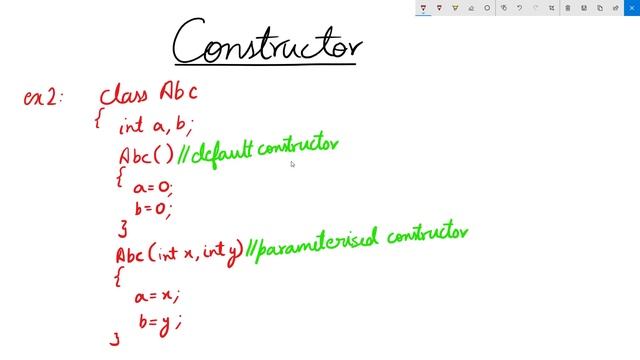 Constructor
ex2: class Abc
{ int a, b;
Abc() //default constructor
{
a=0;
b=0;
}
Abc(int x, int y) //parameterised constructor
{
a=x;
b=y;
}